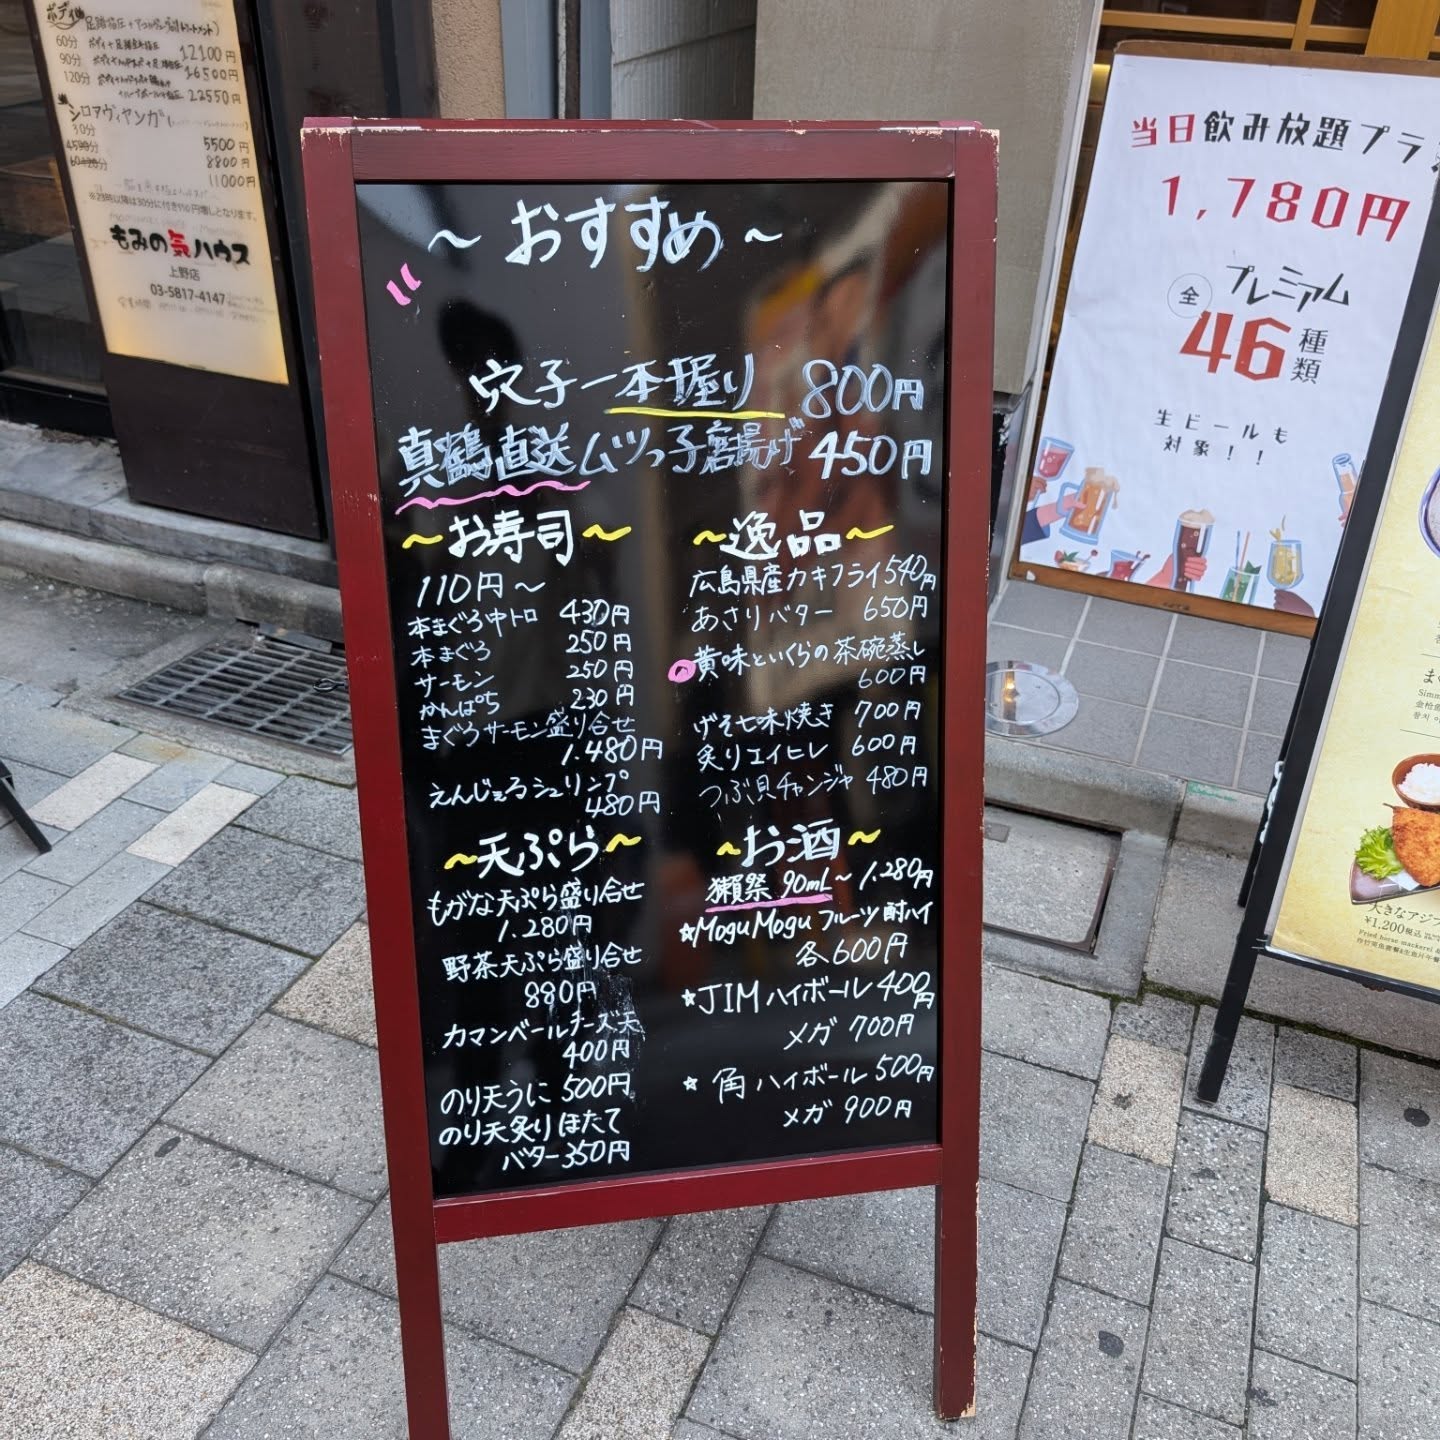 ～おすすめ～
穴子一本握り 800円
真鶴直送ムツっ子唐揚げ 450円
～お寿司～
110円～
本まぐろ中トロ 430円
本まぐろ 250円
サーモン 250円
かんぱち 230円
まぐろサーモン盛り合せ
1.480円
えんじぇるシュリンプ
480円
～天ぷら～
もがな天ぷら盛り合せ
1.280円
野菜天ぷら盛り合せ
880円
カマンベールチーズ天
400円
のり天うに 500円
のり天炙りほたて
バター 350円
～逸品～
広島県産カキフライ 540円
あさりバター 650円
黄味といくらの茶碗蒸し
600円
げそ七味焼き 700円
炙りエイヒレ 600円
つぶ貝チャンジャ 480円
～お酒～
獺祭 90mL～1.280円
☆MoguMogu フルーツ酎ハイ
各600円
☆JIMハイボール 400円
メガ 700円
☆角ハイボール 500円
メガ 900円
60分
12100円
90分
16500円
120分
22550円
30分 5500円
8800円
11000円
もみの気ハウス
上野店
03-5817-4147
当日飲み放題プラ
1,780円
全
プレミアム
46種類
生ビールも
対象！！
大きなアジフ
¥1,200税込
Fried horse mackerel &